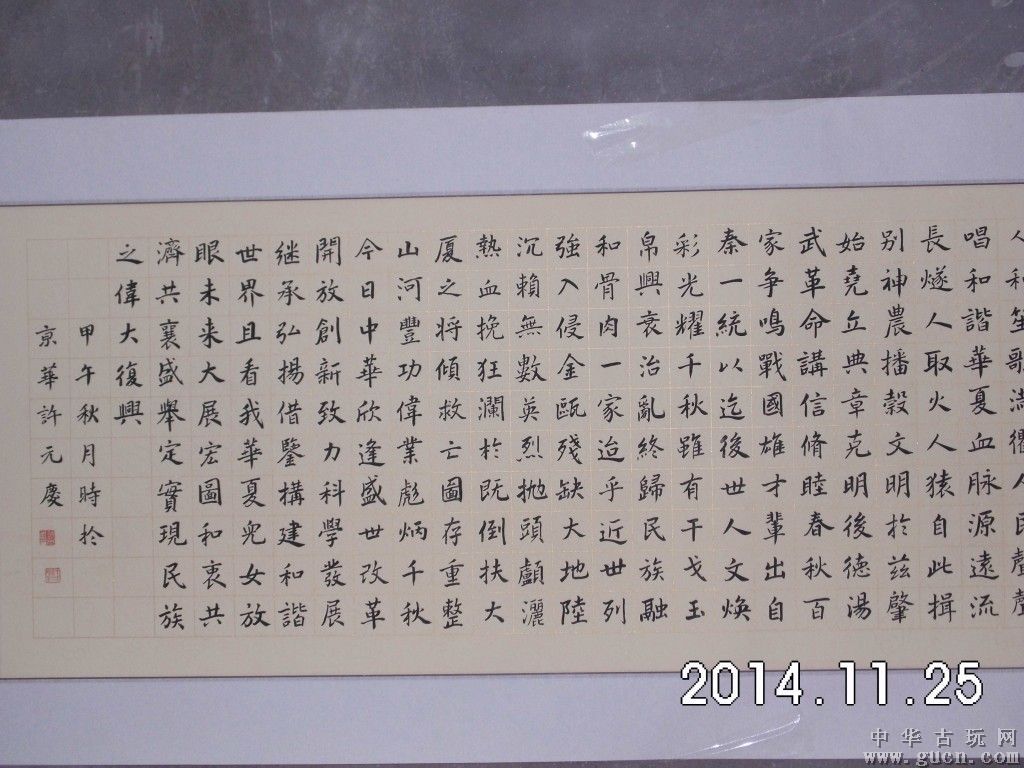 人和笙歌满衢人民聲聲
唱和諧華夏血脉源遠流
長燧人取火人猿自此揖
别神農播穀文明於兹肇
始堯立典章克明後徳湯
武革命講信脩睦春秋百
家争鳴戰國雄才輩出自
秦一統以迄後世人文焕
彩光耀千秋雖有干戈玉
帛興衰治亂終歸民族融
和骨肉一家迨乎近世列
強入侵金甌殘缺大地陸
沉賴無數英烈抛頭顱灑
熱血挽狂瀾於既倒扶大
厦之将傾救亡圖存重整
山河豐功偉業彪炳千秋
今日中華欣逢盛世改革
開放創新致力科學發展
继承弘揚借鑒構建和諧
世界且看我華夏兒女放
眼未来大展宏圖和衷共
濟共襄盛舉定實現民族
之偉大復興
甲午秋月時於
京華許元慶
2014.11.25
中华古玩网
www.gucn.com